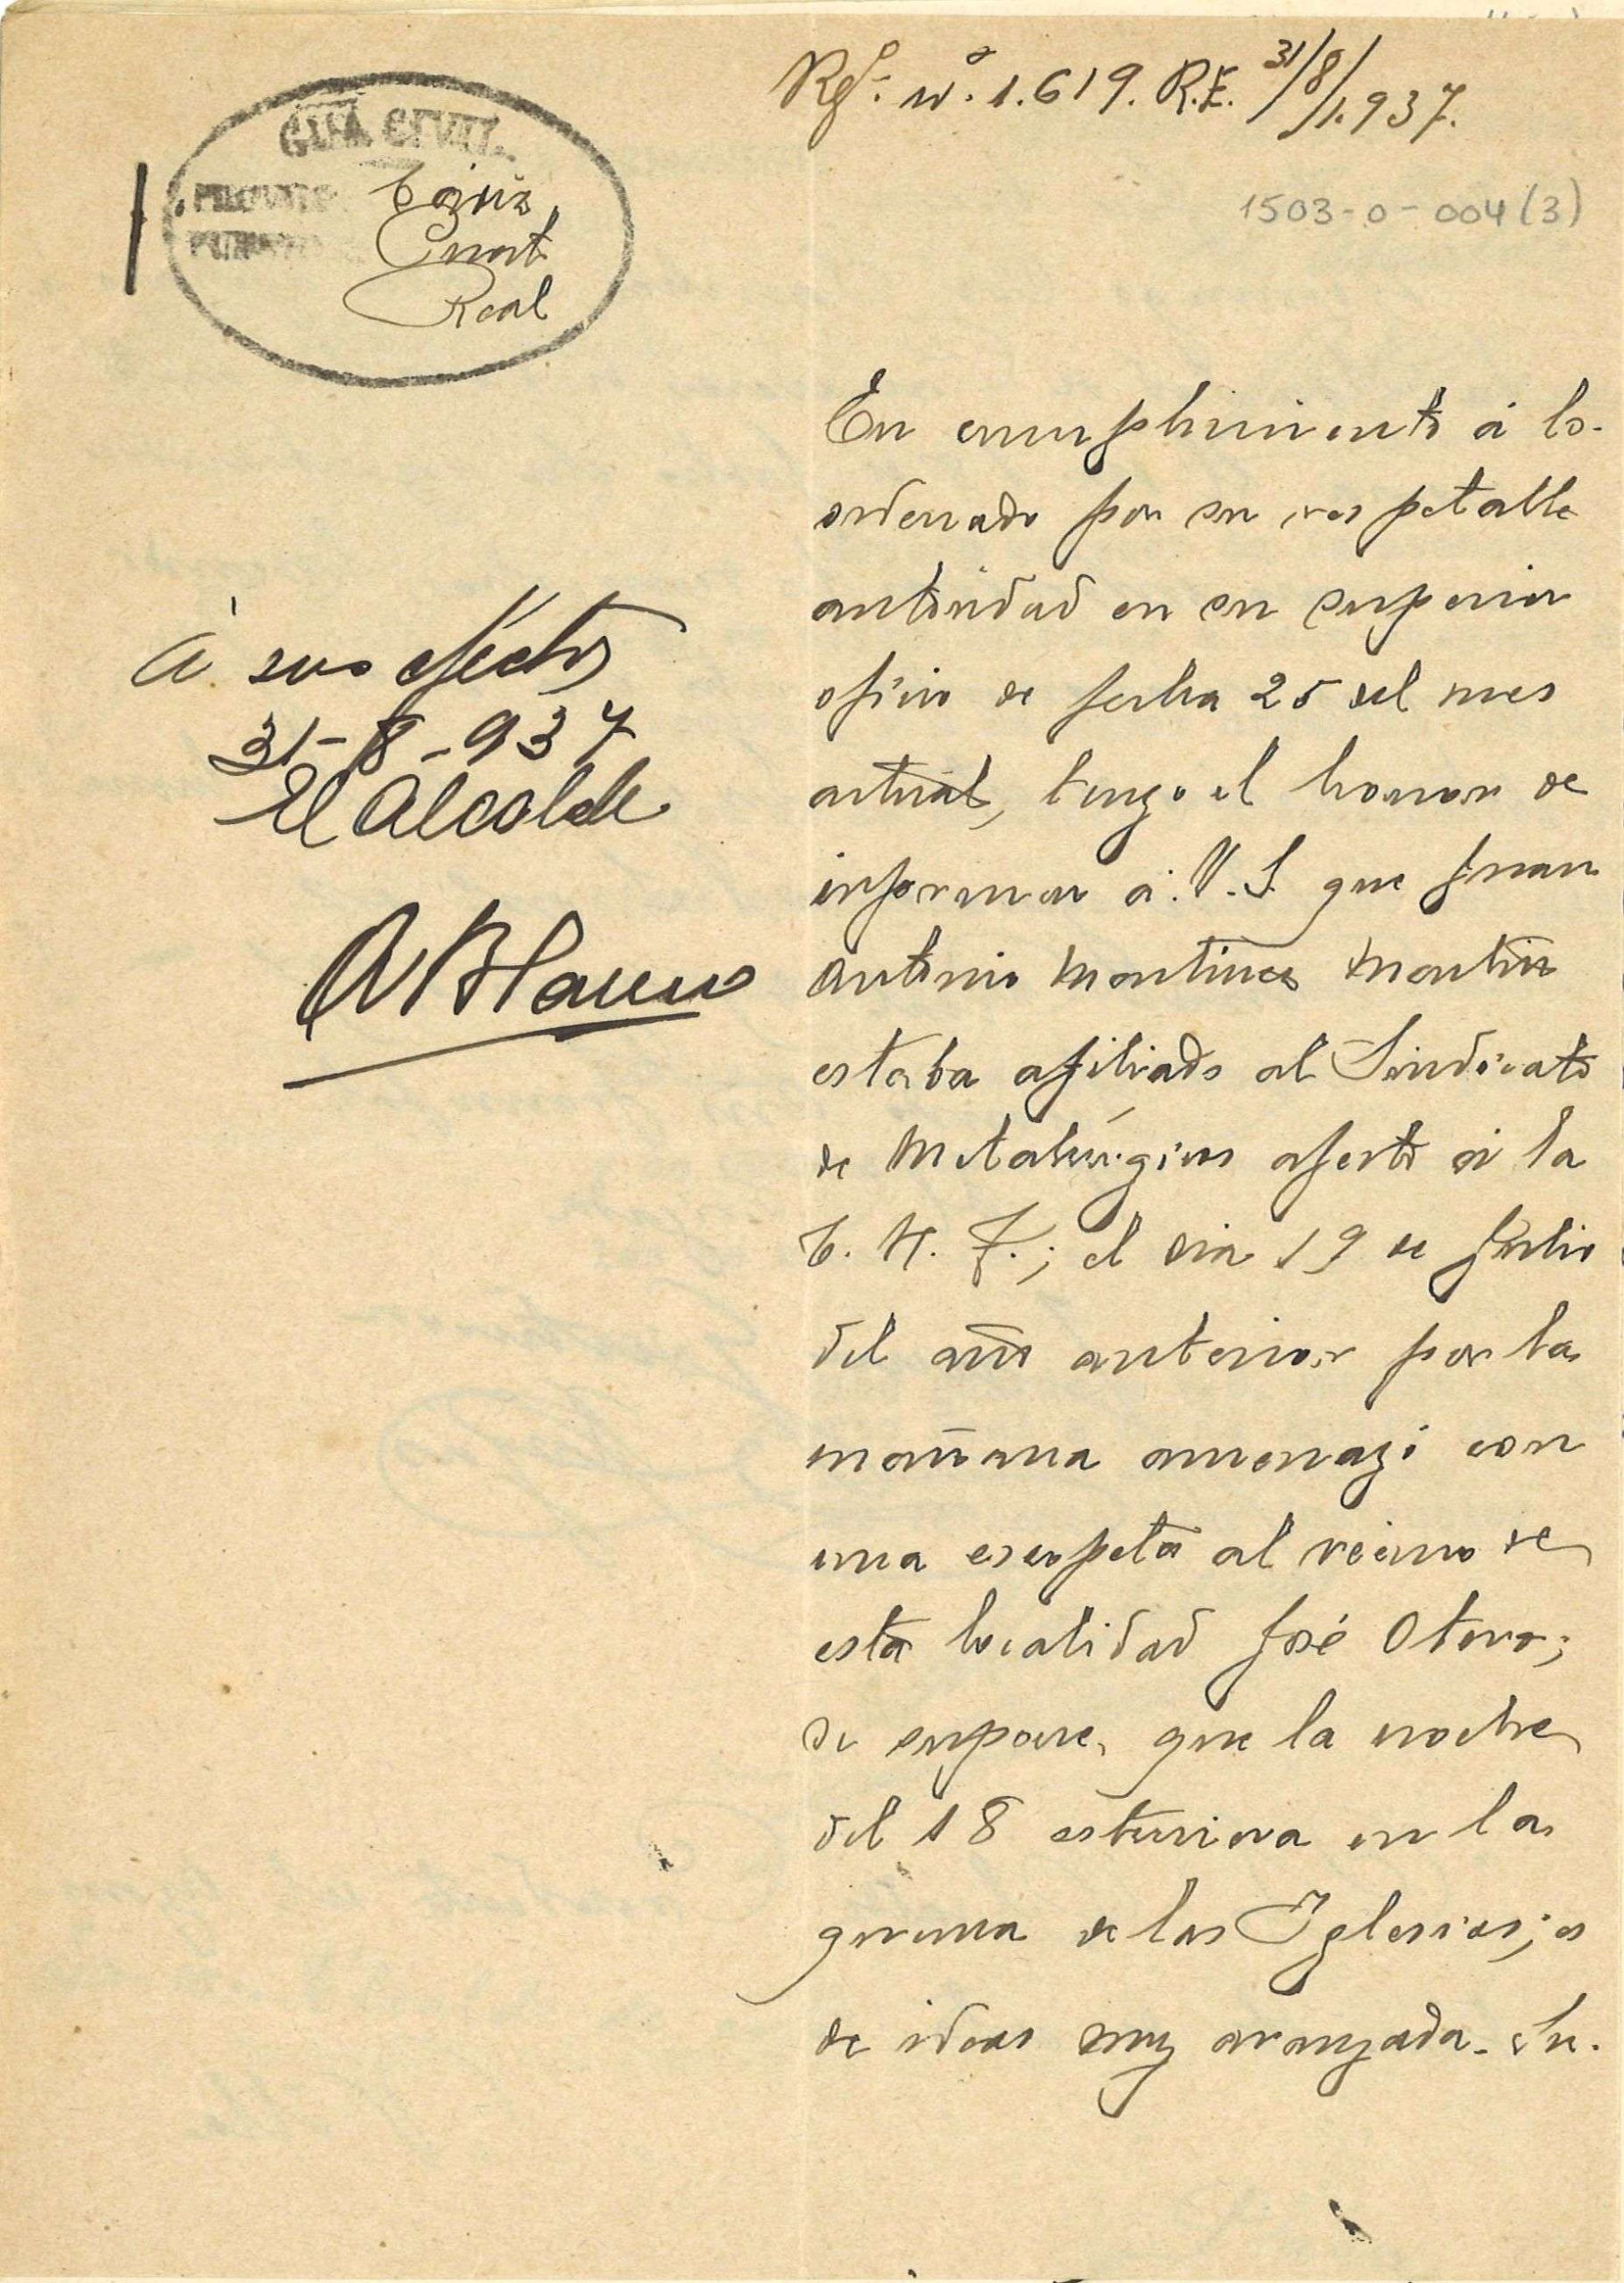 Rgº. nº. 1.619. R.E. 31/8/1.937.
1503-0-004(3)
GUA. CIVIL
Cadiz
Puert
Real
En cumplimiento á lo
ordenado por su respetable
autoridad en su superior
oficio de fecha 25 del mes
actual, tengo el honor de
informar á V.S. que Juan
Antonio Martinez Martin
estaba afiliado al Sindicato
de Metalúrgicos afecto á la
C. N. T.; el dia 19 de Julio
del año anterior por la
mañana amenazó con
una escopeta al vecino de
esta localidad José Otero;
se supone, que la noche
del 18 estuviera en la
quema de las Iglesias; es
de ideas muy avanzada. Su
Á sus efectos
31-8-937
El Alcalde